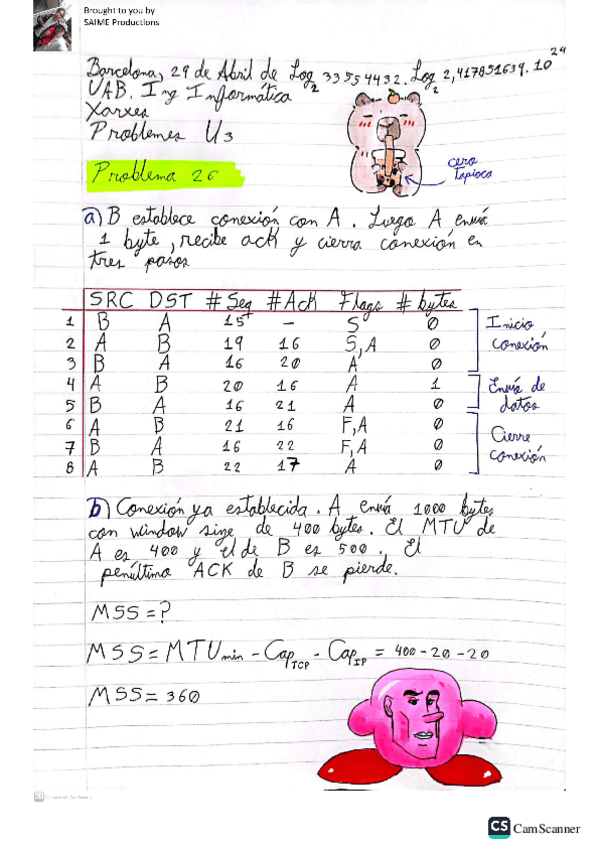 Brought to you by
SAIME Productions
Barcelona, 29 de Abril de Log₂ 33554432 . Log₂ 2,417851639.10²⁴
UAB. Ing Informática
Xarxes
Problemes U3
Problema 26
cero
tapioca
a) B establece conexión con A. Luego A envía
1 byte, recibe ack y cierra conexión en
tres pasos
SRC DST #Seq #Ack Flags # bytes
1 B A 15 – S 0
2 A B 19 16 S,A 0
3 B A 16 20 A 0
4 A B 20 16 A 1
5 B A 16 21 A 0
6 A B 21 16 F,A 0
7 B A 16 22 F,A 0
8 A B 22 17 A 0
Inicio
conexión
Envío de
datos
Cierre
conexión
b) Conexión ya establecida. A envía 1000 bytes
con window size de 400 bytes. El MTU de
A es 400 y el de B es 500. El
penúltimo ACK de B se pierde.
MSS = ?
MSS = MTUmin - CapTCP - CapIP = 400 - 20 - 20
MSS = 360
CS CamScanner